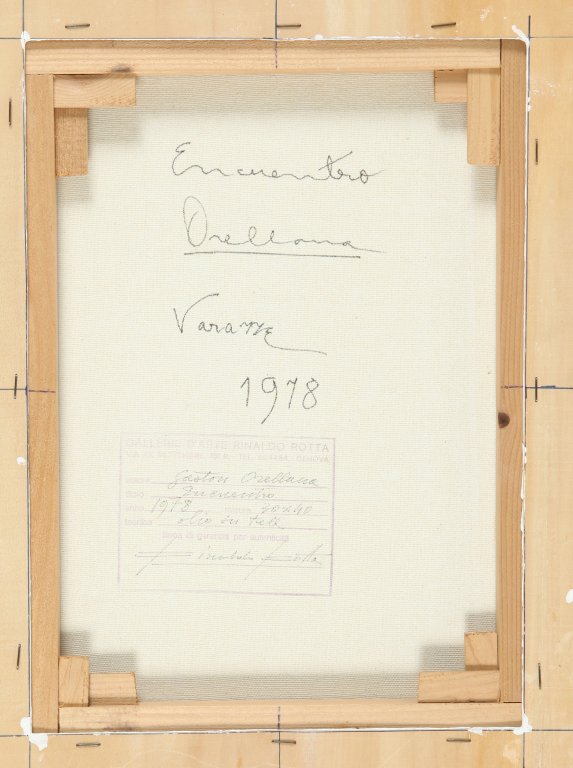 Encuentro
Orellana
Varazze
1978
GALLERIE D'ARTE RINALDO ROTTA
VIA XX SETTEMBRE TEL. GENOVA
autore Gaston Orellana
titolo Encuentro
anno 1978 misura 30x40
tecnica olio su tela
firma di garanzia per autenticità